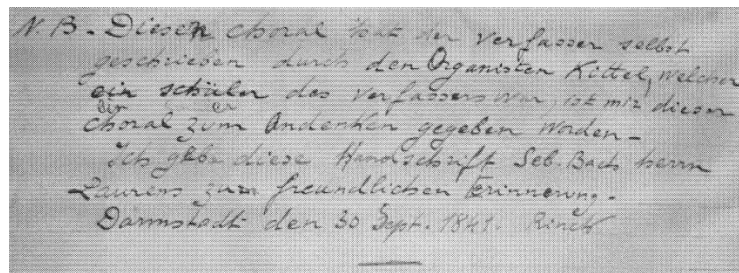 N.B. - Diesen choral hat der Verfasser selbst
geschrieben durch den Organisten Kittel, welcher
ein schüler des Verfassers war, ist mir dieser
choral zum Andenken gegeben worden -
Ich gebe diese Handschrift Seb. Bach herrn
Laurens zum freundlichen Erinnerung.
Darmstadt den 30 Sept. 1841. Rinck